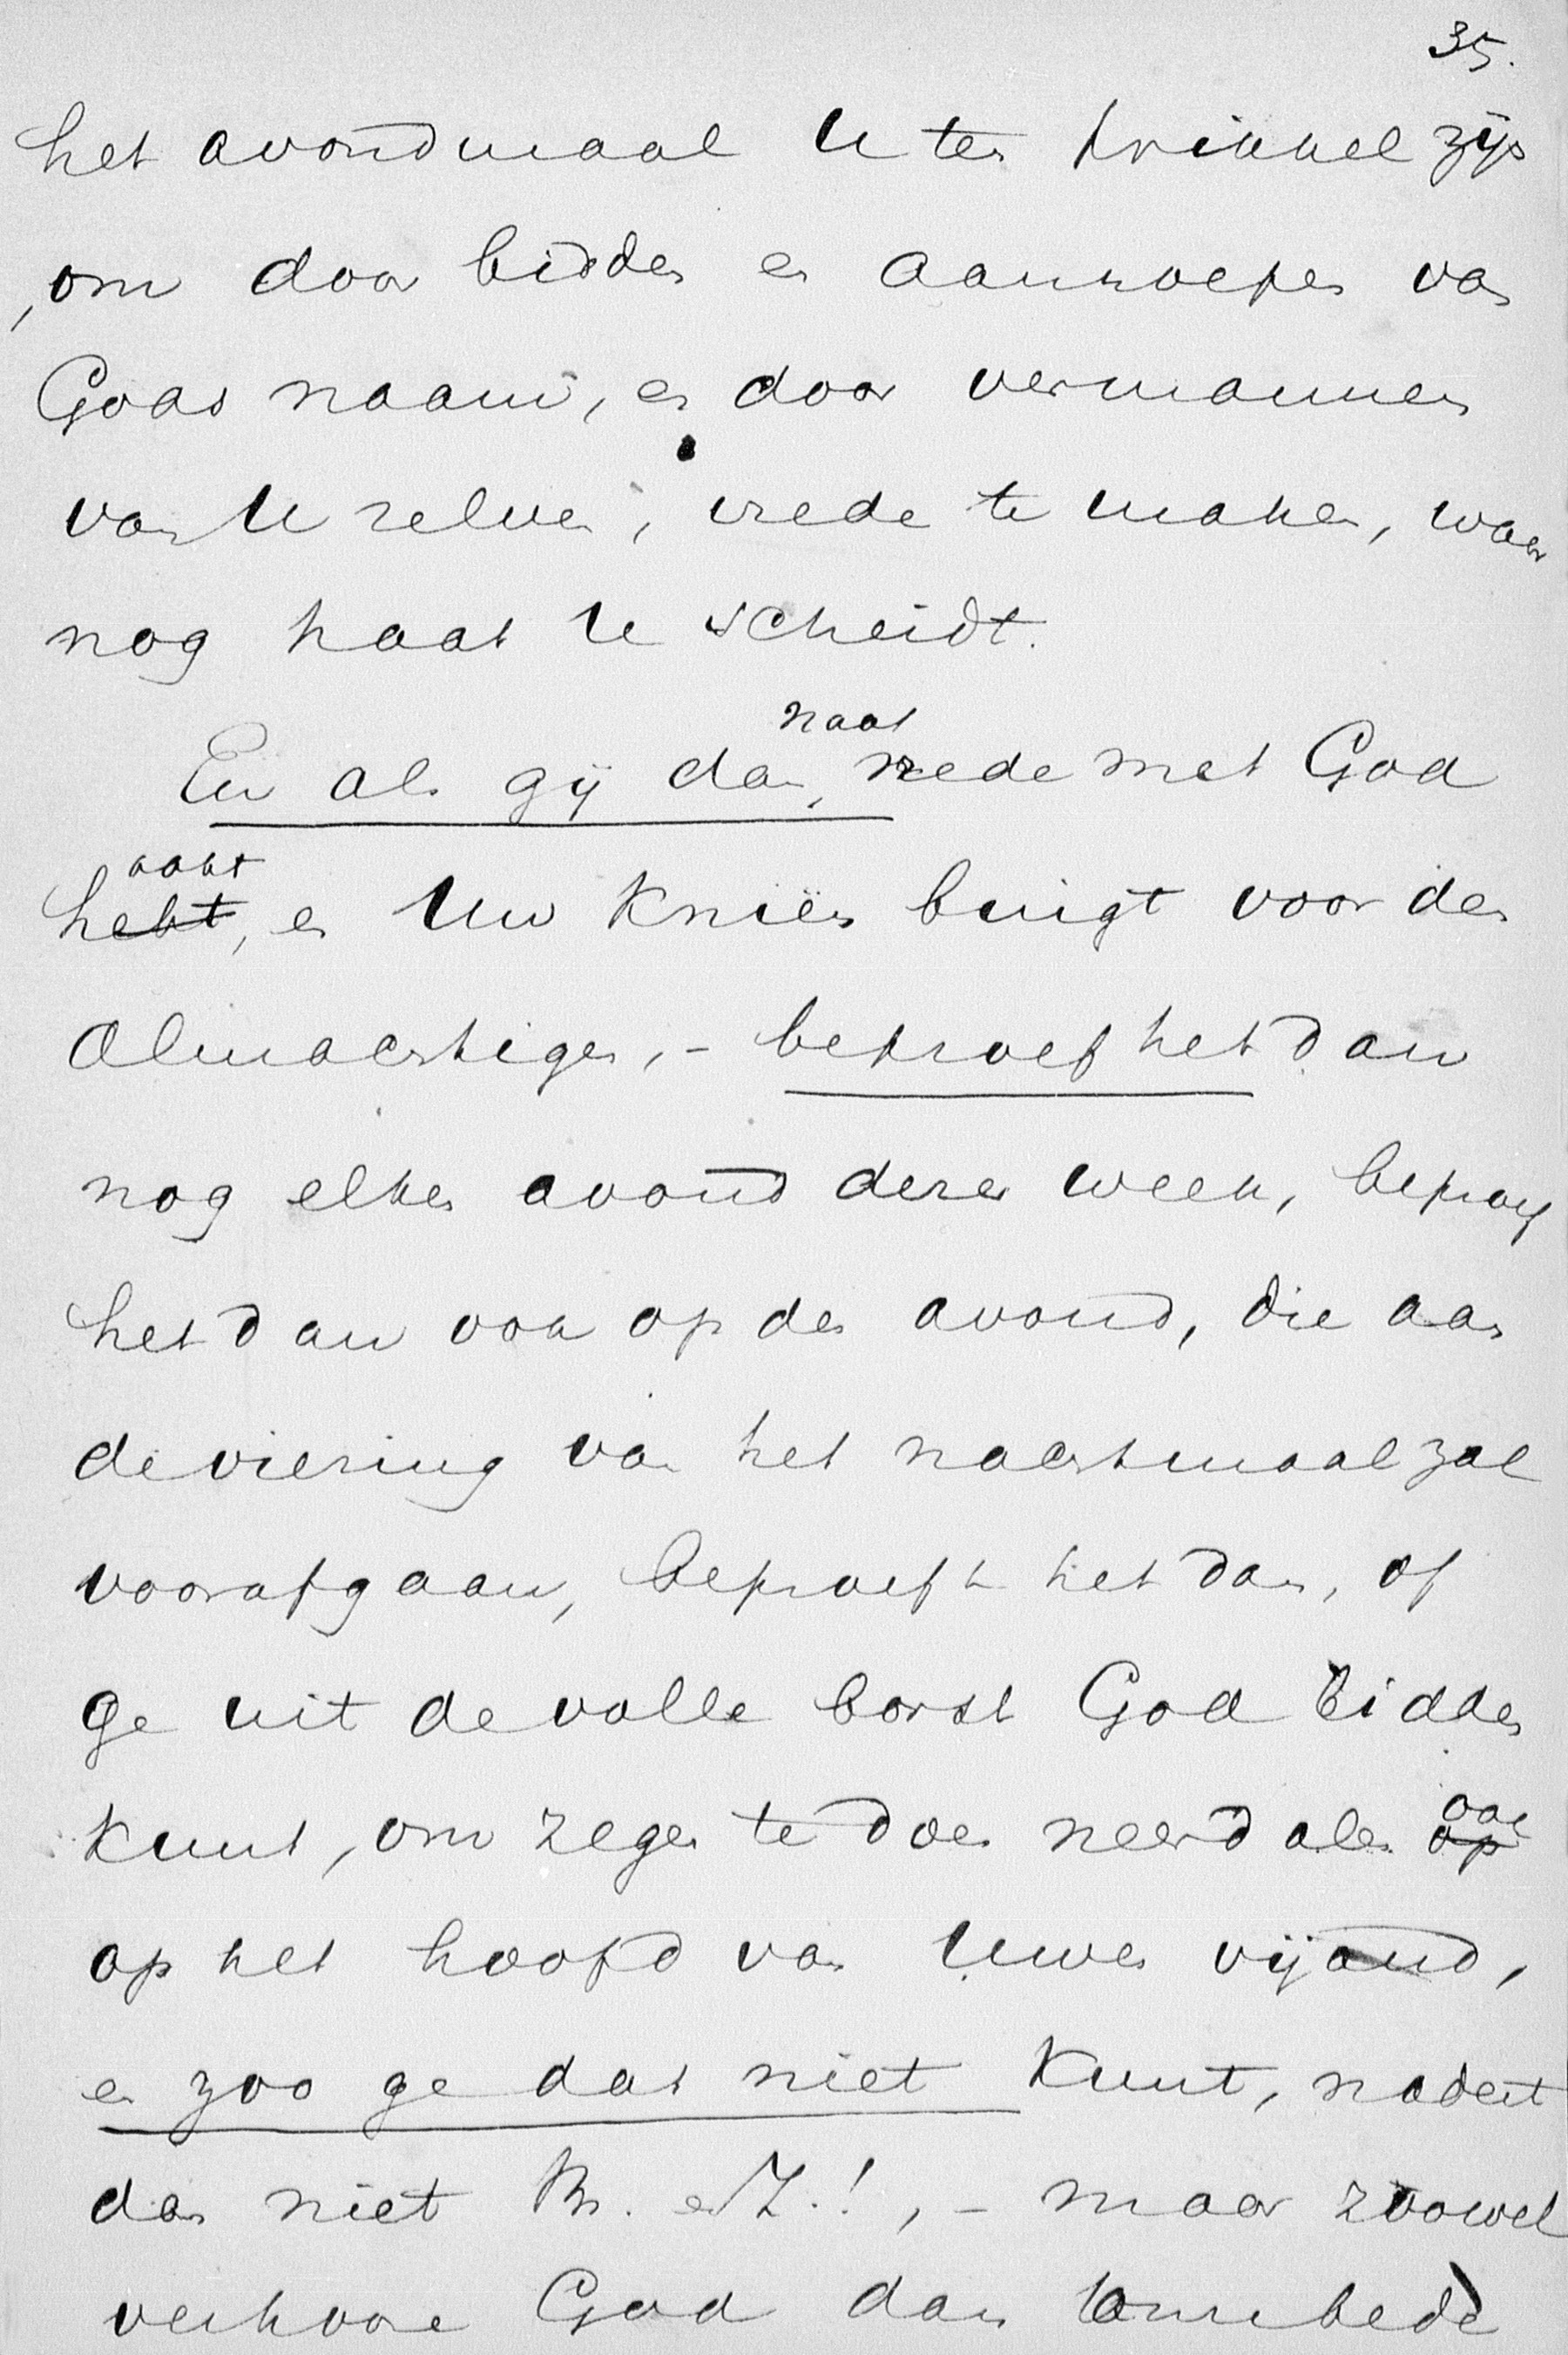 35.
het avondmaal U ten prikkel zijn
, om door bidden en aanroepen van
Gods naam, en door vermannen
van U zelven, vrede te maken, waar
nog haat U scheidt.
naar
En als gij dan, vrede met God
zoekt
hebt, en Uw knieën buigt voor den
Almachtigen, - beproef het dan
nog elken avond dezer week, beproef
het dan ook op den avond, die aan
de viering van het nachtmaal zal
voorafgaan, beproeft het dan, of
ge uit de volle borst God bidden
kunt, om zegen te doen neerdalen ook
op
op het hoofd van Uwen vijand,
en zoo ge dat niet kunt, nadert
dan niet Br. en Z.!, - maar zoowel
verhoore God dan Uwe bede